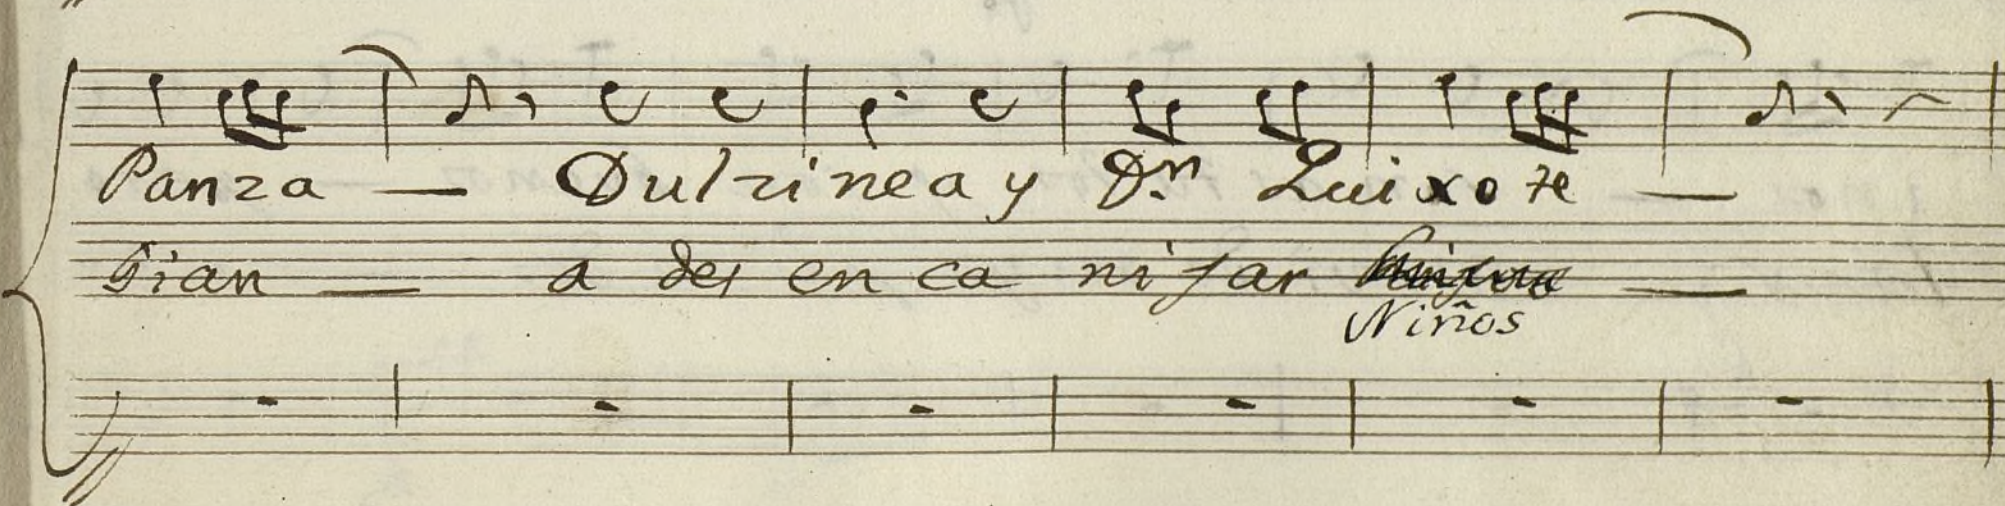 Panza — Dulzinea y Dn. Quixote —
a des en ca ni jar —
Niños